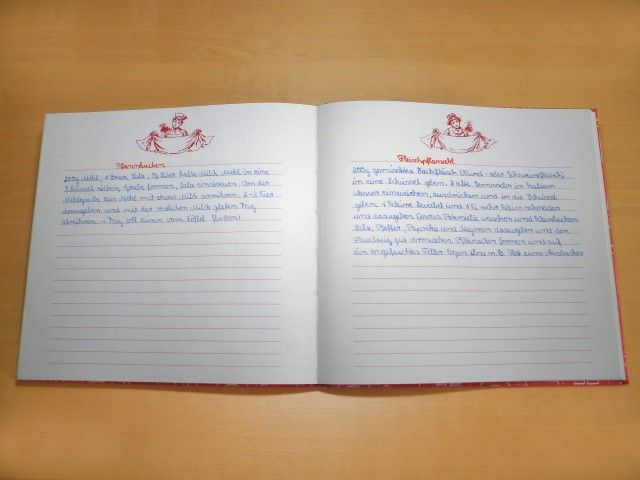 Pfannkuchen
200g Mehl, 1 Prise Salz, ½ Liter kalte Milch. Mehl in eine
Schüssel sieben, Grube formen, Salz einstreuen. Von der
Mehlgrube aus Mehl mit etwas Milch anrühren. 2-3 Eier
dazugeben und mit der restlichen Milch glatten Teig
abrühren. - Teig soll dünn vom Löffel fließen!
Fleischpflanzerl
200g gemischtes Hackfleisch (Rind- oder Schweinefleisch)
in eine Schüssel geben. 2 alte Semmeln in kaltem
Wasser einweichen, ausdrücken und in die Schüssel
geben. 1 kleine Zwiebel und 1 Ei sehr klein schneiden
und dazugeben. Petersilie waschen und kleinhacken
Salz, Pfeffer, Paprika und Majoran dazugeben und den
Fleischteig gut vermischen. Pflanzerl formen und auf
ein angefeuchtetes Teller legen. Fett zum Ausbacken